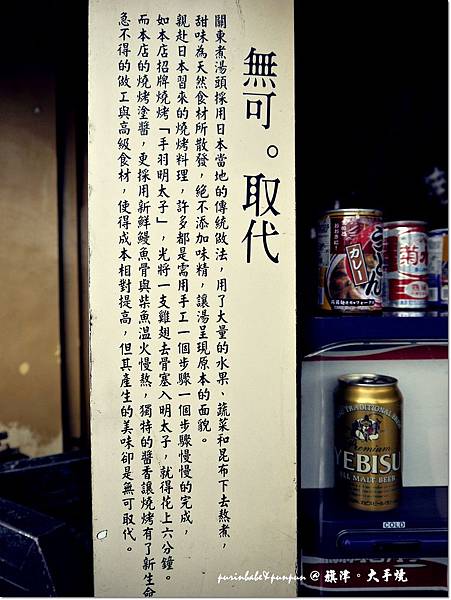 無可。取代
關東煮湯頭採用日本當地的傳統做法，用了大量的水果、蔬菜和昆布下去熬煮，
甜味為天然食材所散發，絕不添加味精，讓湯呈現原本的面貌。
親赴日本習來的燒烤料理，許多都是需用手工一個步驟一個步驟慢慢的完成，
如本店招牌燒烤「手羽明太子」，光將一支雞翅去骨塞入明太子，就得花上六分鐘。
而本店的燒烤塗醬，更採用新鮮鰻魚骨與柴魚溫火慢熬，獨特的醬香讓燒烤有了新生命
急不得的做工與高級食材，使得成本相對提高，但其產生的美味卻是無可取代。
カレー
菊水
THE TRADITIONAL
Premium
YEBISU
ALL MALT BEER
COLD
purinbabe&punpun @ 旗津。大手燒